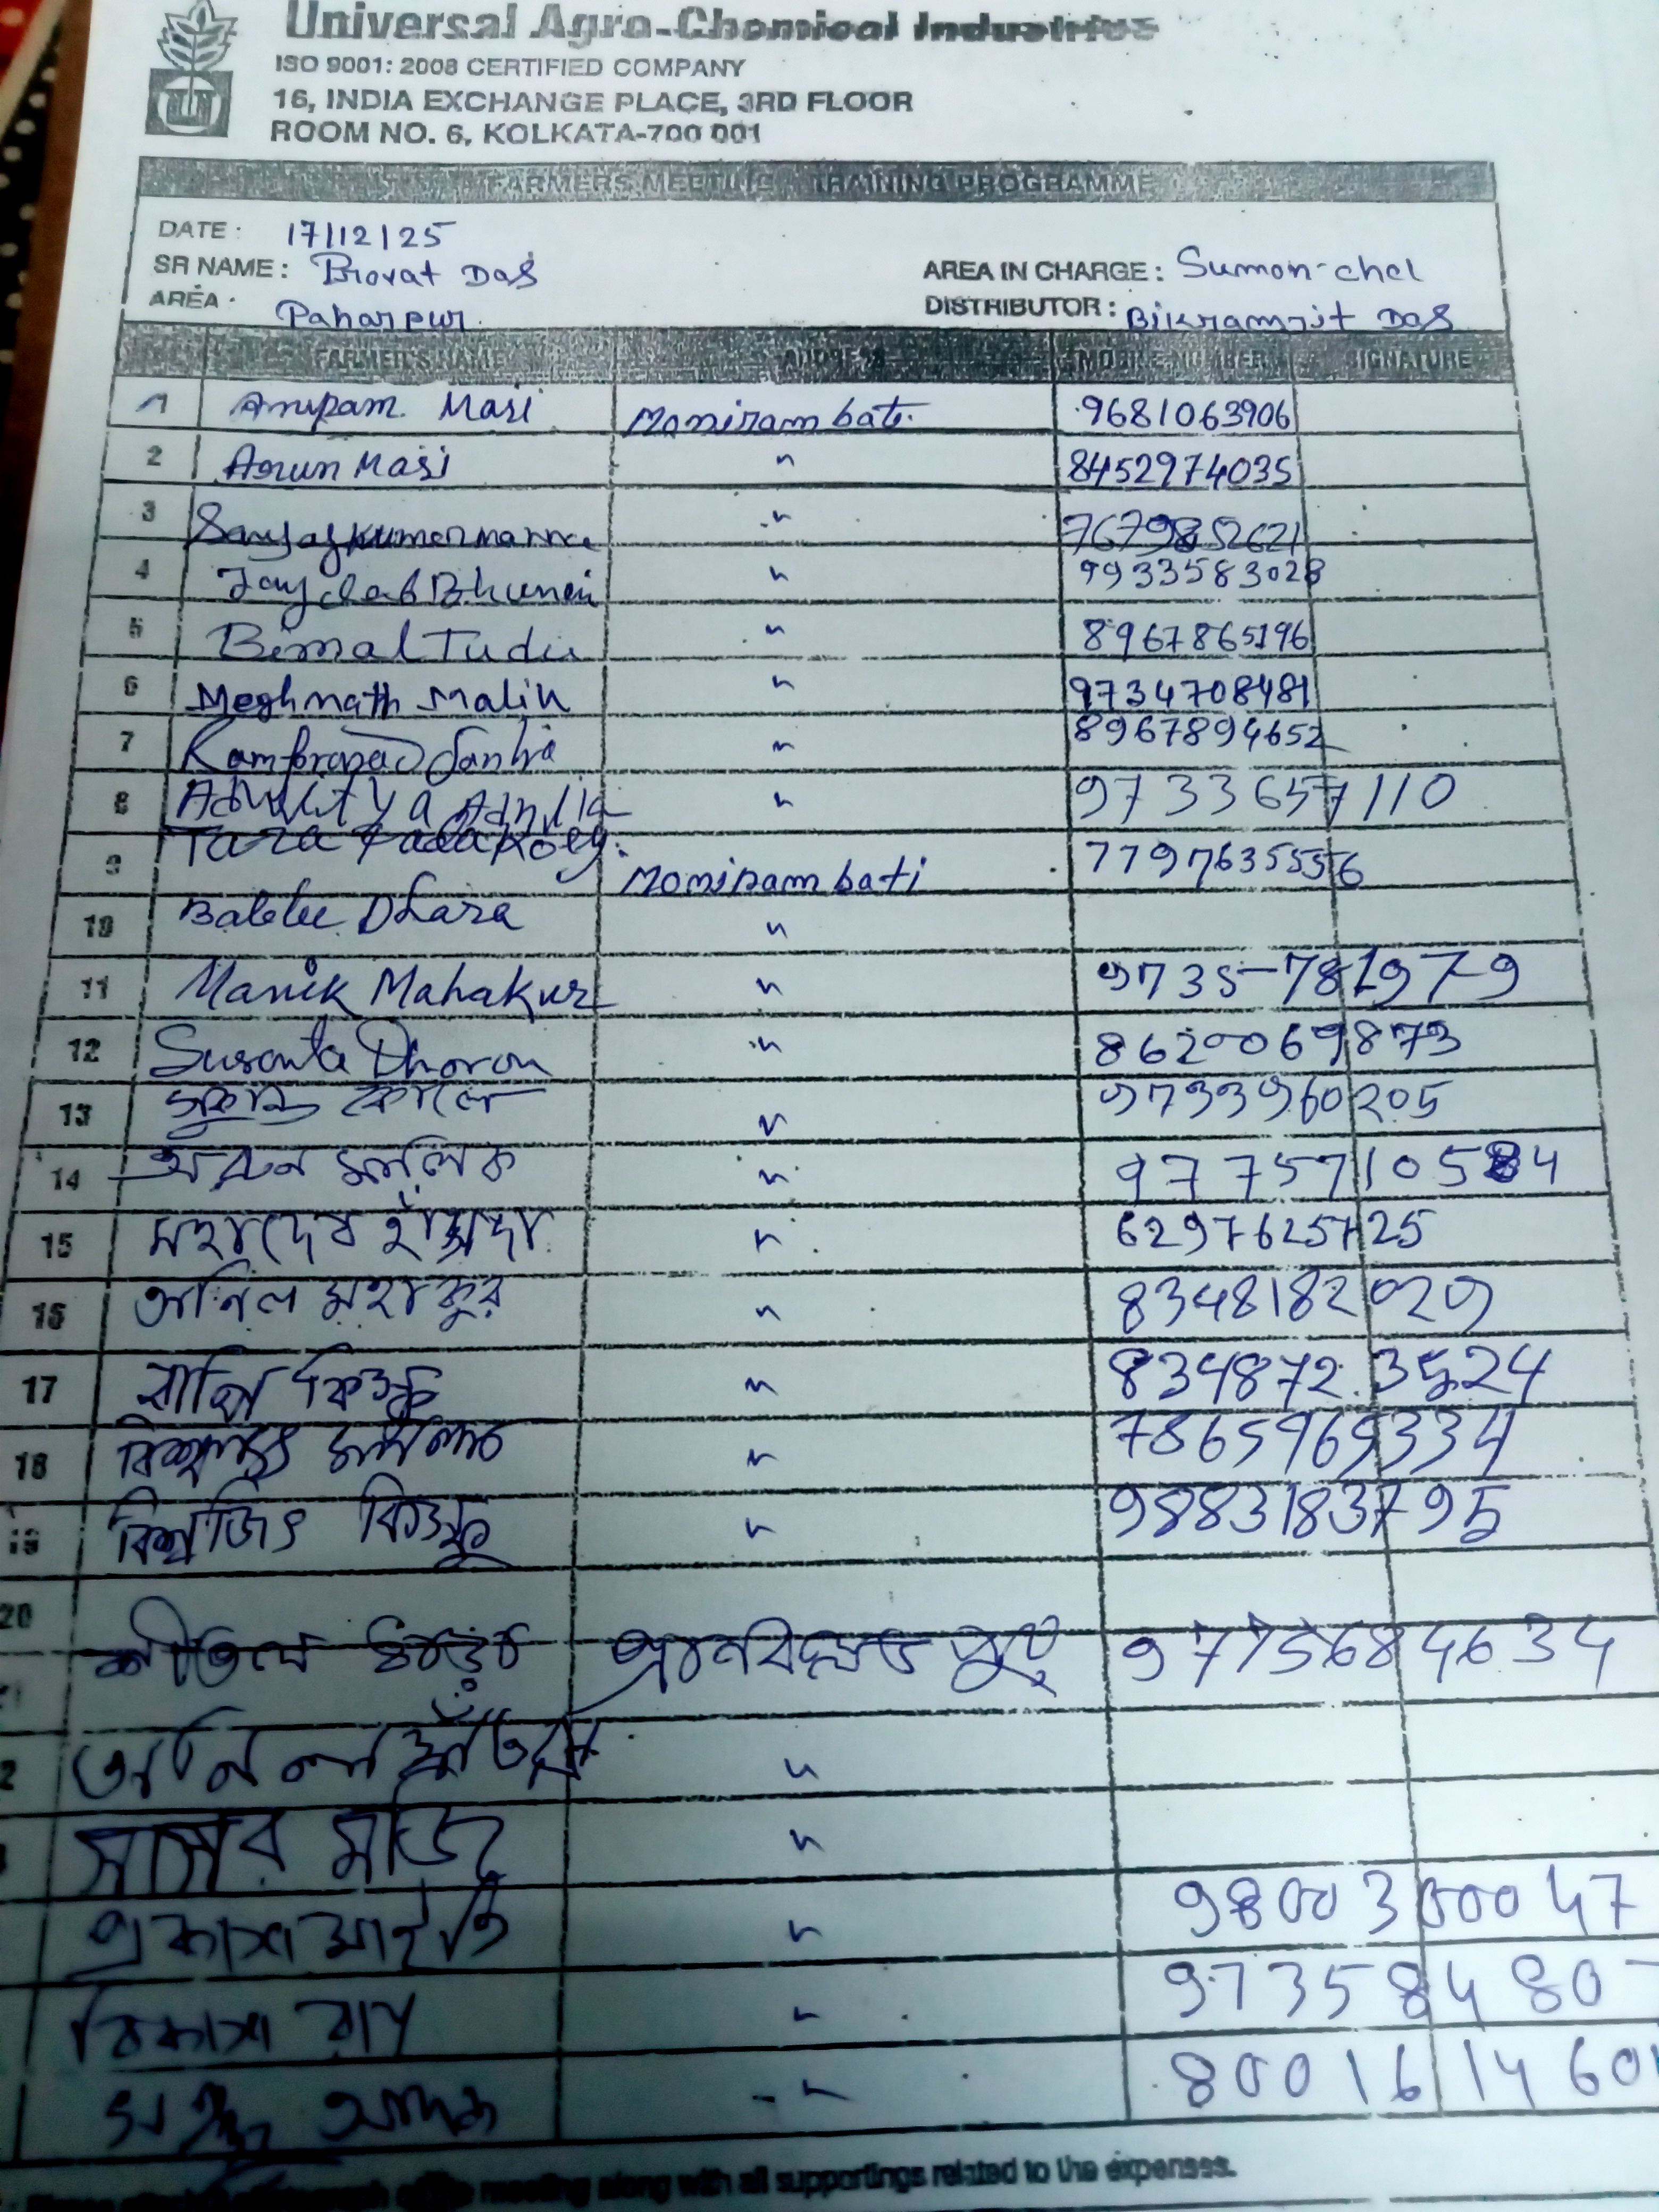 Universal Agro-Chemical Industries
ISO 9001: 2008 CERTIFIED COMPANY
16, INDIA EXCHANGE PLACE, 3RD FLOOR
ROOM NO. 6, KOLKATA-700 001
FARMERS MEETING TRAINING PROGRAMME
DATE : 17/12/25
SR NAME : Biovat Das AREA IN CHARGE : Sumon-chel
AREA : Paharpur DISTRIBUTOR : Bikramjit Das
FARMER'S NAME ADDRESS MOBILE NUMBER SIGNATURE
1 Anupam Masi Moniram bati 9681063906
2 Arun Masi " 8452974035
3 Sanjaykumarmanna " 7679852621
4 Joydeb Bhunia " 9933583028
5 Bimal Tudu " 8967865196
6 Meghnath Malik " 9734708481
7 Ramprasad Santra " 8967894652
8 " 9733657110
9 Tara Pada Koley Moniram bati 7797635556
10 Bablu Dhara "
11 Manik Mahakur " 9735-781979
12 Susanta Dhoron " 8620069873
13 " 9733960205
14 মালিক " 9775710584
15 মহাদেব হাঁসদা " 6297625725
16 অনিল মহাকুর " 8348182029
17 কিস্কু " 8348723524
18 " 7865969334
19 বিশ্বজিৎ কিস্কু " 9883183795
20
শীতল 9775684634
অনিল "
মাঝি "
প্রকাশ মাইতি " 9800300047
বিকাশ রায় " 973584807
" 8001614601
meeting along with all supportings related to the expenses.